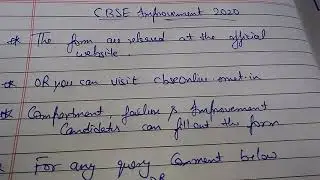 CBSE Improvement 2020
* The form are released at the official
website.
* OR you can visit cbseonline.nic.in
* Compartment, failure & Improvement
Candidates can fill out the form
* For any query Comment below
OR